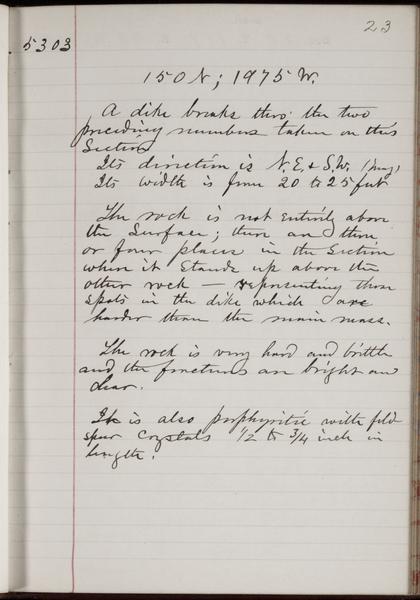 23
5303
150 N; 1975 W.
A dike breaks thro: the two
preceding numbers taken on this
Section
Its direction is N.E. & S.W. (mag)
Its width is from 20 to 25 feet
The rock is not entirely above
the Surface; there are three
or four places in the Section
where it Stands up above the
other rock — representing those
spots in the dike which are
harder than the main mass.
The rock is very hard and brittle
and the fractures are bright and
clear.
It is also porphyritic with feld-
spar crystals 1/2 to 3/4 inch in
length.